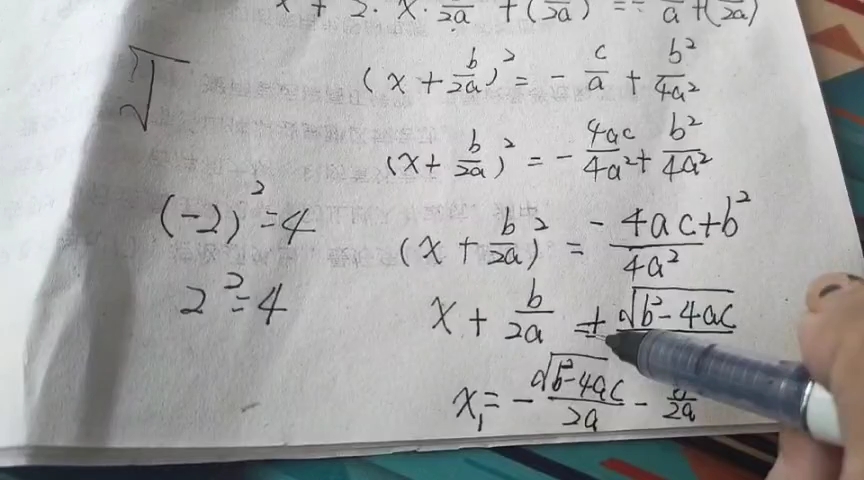 x + 2 · x · b/2a + (b/2a) = - c/a + (b/2a)
(x + b/2a)² = - c/a + b²/4a²
(x + b/2a)² = - 4ac/4a² + b²/4a²
(-2)² = 4
(x + b/2a)² = -4ac+b²/4a²
2² = 4
x + b/2a = ± √b²-4ac
x₁ = - √b²-4ac/2a - b/2a